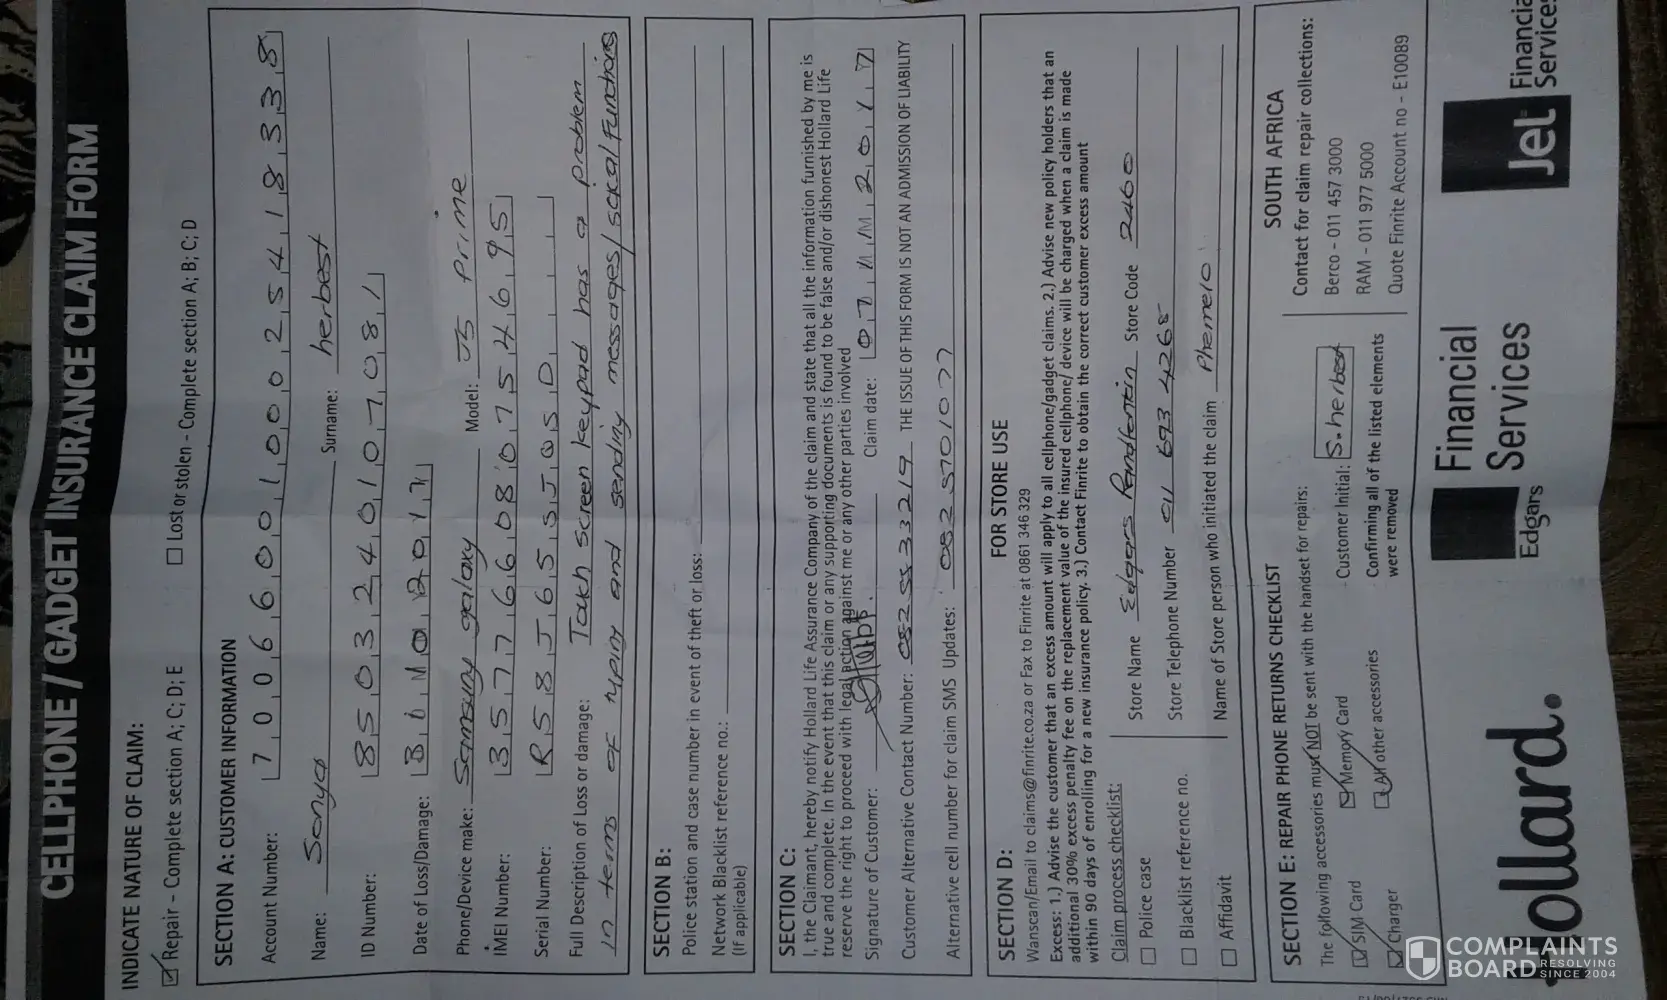 CELLPHONE / GADGET INSURANCE CLAIM FORM
INDICATE NATURE OF CLAIM:
Repair - Complete section A; C; D; E
Lost or stolen - Complete section A; B; C; D
SECTION A: CUSTOMER INFORMATION
Account Number: 7 0 0 6 6 0 0 1 0 0 0 2 5 4 1 8 3 3 8
Name: Sonya Surname: herbest
ID Number: 8 5 0 3 2 4 0 1 0 7 0 8 1
Date of Loss/Damage:
Phone/Device make: Samsung galaxy Model: J5 Prime
IMEI Number: 3 5 7 7 6 6 0 8 0 7 5 4 6 9 5
Serial Number: R 5 8 J 6 5 5 J
Full Description of Loss or damage: Tach screen keypad has a problem
in terms of typing and sending messages/ social functions
SECTION B:
Police station and case number in event of theft or loss:
Network Blacklist reference no.:
(If applicable)
SECTION C:
I, the Claimant, hereby notify Hollard Life Assurance Company of the claim and state that all the information furnished by me is
true and complete. In the event that this claim or any supporting documents is found to be false and/or dishonest Hollard Life
reserve the right to proceed with legal action against me or any other parties involved
Signature of Customer: Claim date: 2 0 1 7
Customer Alternative Contact Number: 082 5533219 THE ISSUE OF THIS FORM IS NOT AN ADMISSION OF LIABILITY
Alternative cell number for claim SMS Updates: 082 5701077
SECTION D: FOR STORE USE
Wanscan/Email to claims@finrite.co.za or Fax to Finrite at 0861 346 329
Excess: 1.) Advise the customer that an excess amount will apply to all cellphone/gadget claims. 2.) Advise new policy holders that an
additional 30% excess penalty fee on the replacement value of the insured cellphone/ device will be charged when a claim is made
within 90 days of enrolling for a new insurance policy. 3.) Contact Finrite to obtain the correct customer excess amount
Claim process checklist:
Police case
Blacklist reference no.
Affidavit
Store Name Edgars Randfontein Store Code 2460
Store Telephone Number 011 693 4268
Name of Store person who initiated the claim Phemelo
SECTION E: REPAIR PHONE RETURNS CHECKLIST
The following accessories must NOT be sent with the handset for repairs:
SIM Card
Memory Card
Charger
All other accessories
Customer Initial: S.herbest
Confirming all of the listed elements
were removed
SOUTH AFRICA
Contact for claim repair collections:
Berco - 011 457 3000
RAM - 011 977 5000
Quote Finrite Account no - E10089
Hollard.
Edgars
Financial
Services
Jet
Financial
Services
COMPLAINTS
BOARD
RESOLVING
SINCE 2004